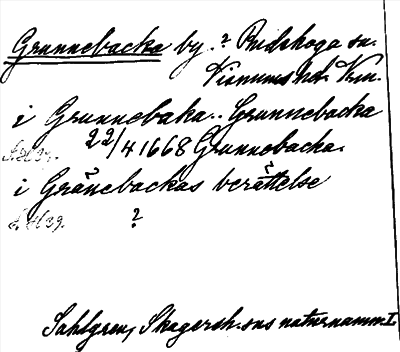 Grunnebacka by ? Rudskoga sn.
Visnums hd. Vrm.
i Grunnebaka.. Grunnebacka
22/4 1668 Grunnebacka.
i Gränebackas berättelse
?
Sahlgren, Skagersh. sns naturnamn I.